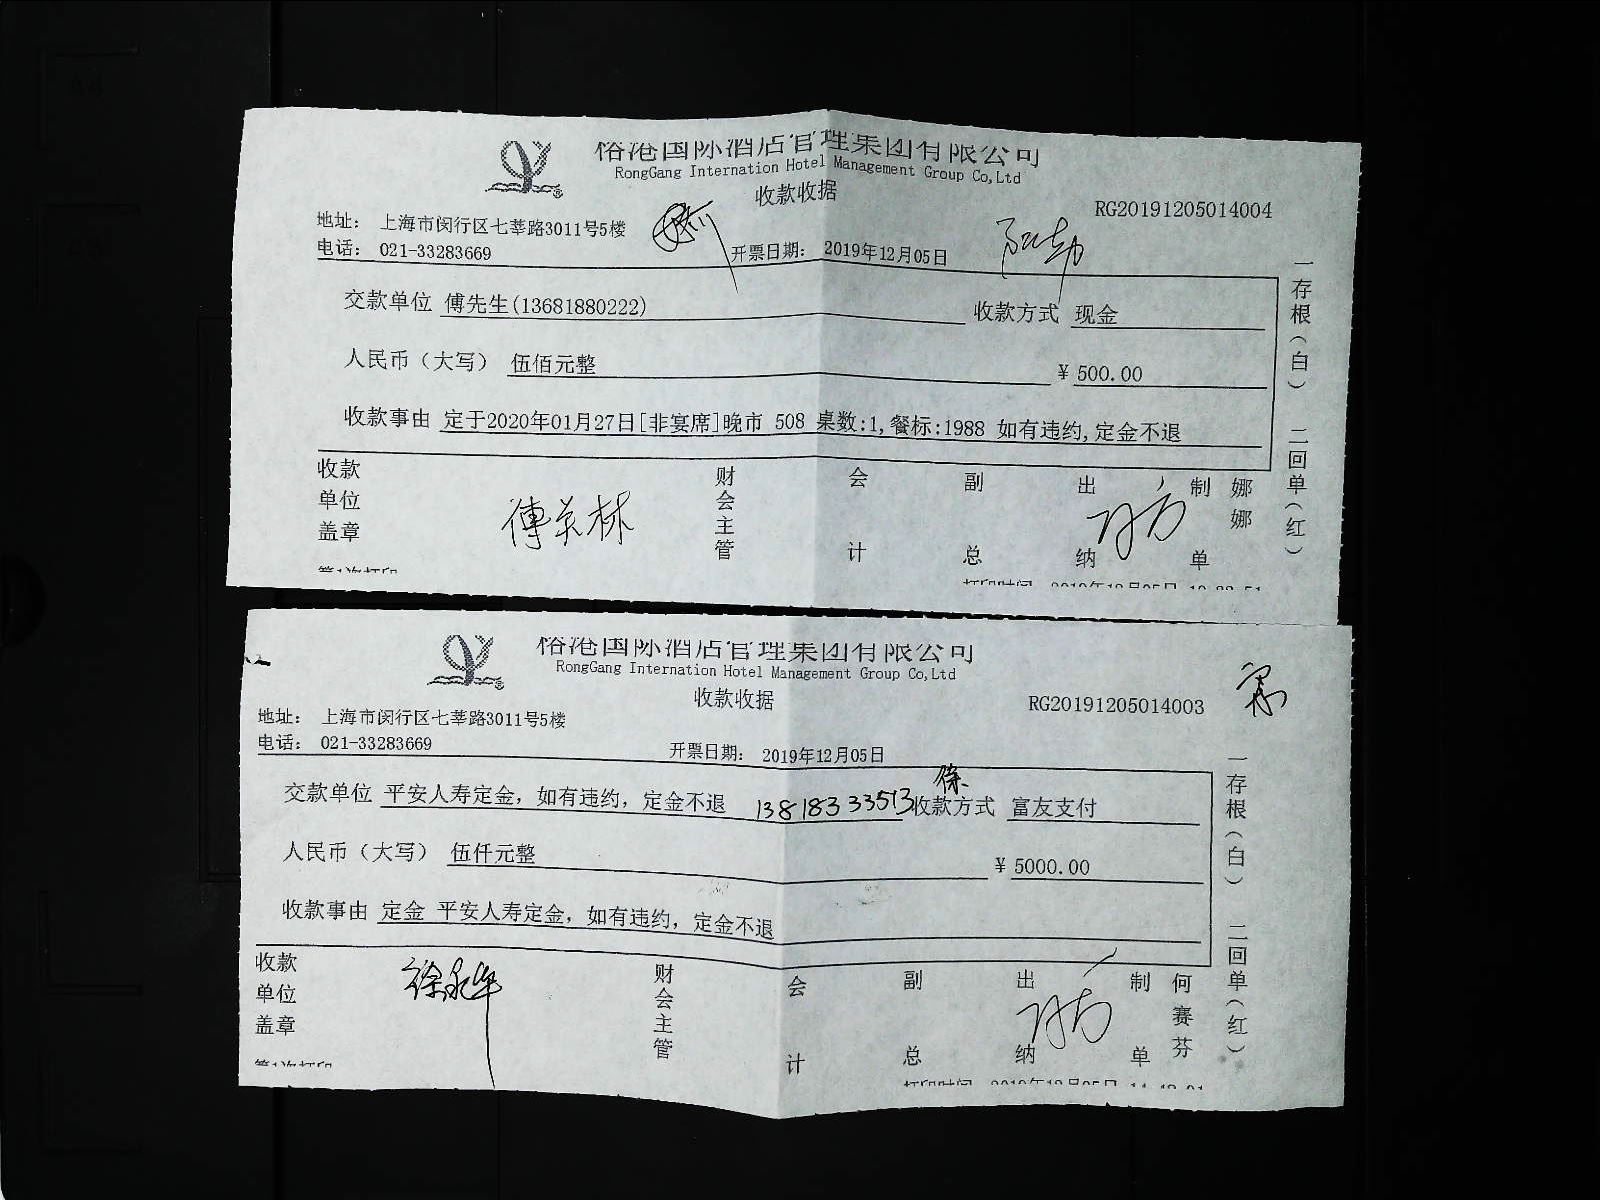 俗港国际酒店管理集团有限公司
RongGang Internation Hotel Management Group Co,Ltd
收款收据
RG20191205014004
地址： 上海市闵行区七莘路3011号5楼
电话： 021-33283669
开票日期： 2019年12月05日
交款单位 傅先生(13681880222) 收款方式 现金
人民币（大写） 伍佰元整 ¥ 500.00
收款事由 定于2020年01月27日[非宴席]晚市 508 桌数:1,餐标:1988 如有违约,定金不退
一存根（白） 二回单（红）
收款单位盖章 财会主管 会计 副总 出纳 制单 娜娜
第1次打印
打印时间 2019年12月05日
俗港国际酒店管理集团有限公司
RongGang Internation Hotel Management Group Co,Ltd
收款收据
RG20191205014003
地址： 上海市闵行区七莘路3011号5楼
电话： 021-33283669
开票日期： 2019年12月05日
徐
交款单位 平安人寿定金，如有违约，定金不退 13818333513 收款方式 富友支付
人民币（大写） 伍仟元整 ¥ 5000.00
收款事由 定金 平安人寿定金，如有违约，定金不退
一存根（白） 二回单（红）
收款单位盖章 徐永华 财会主管 会计 副总 出纳 制单 何赛芬
第1次打印
打印时间 2019年12月05日